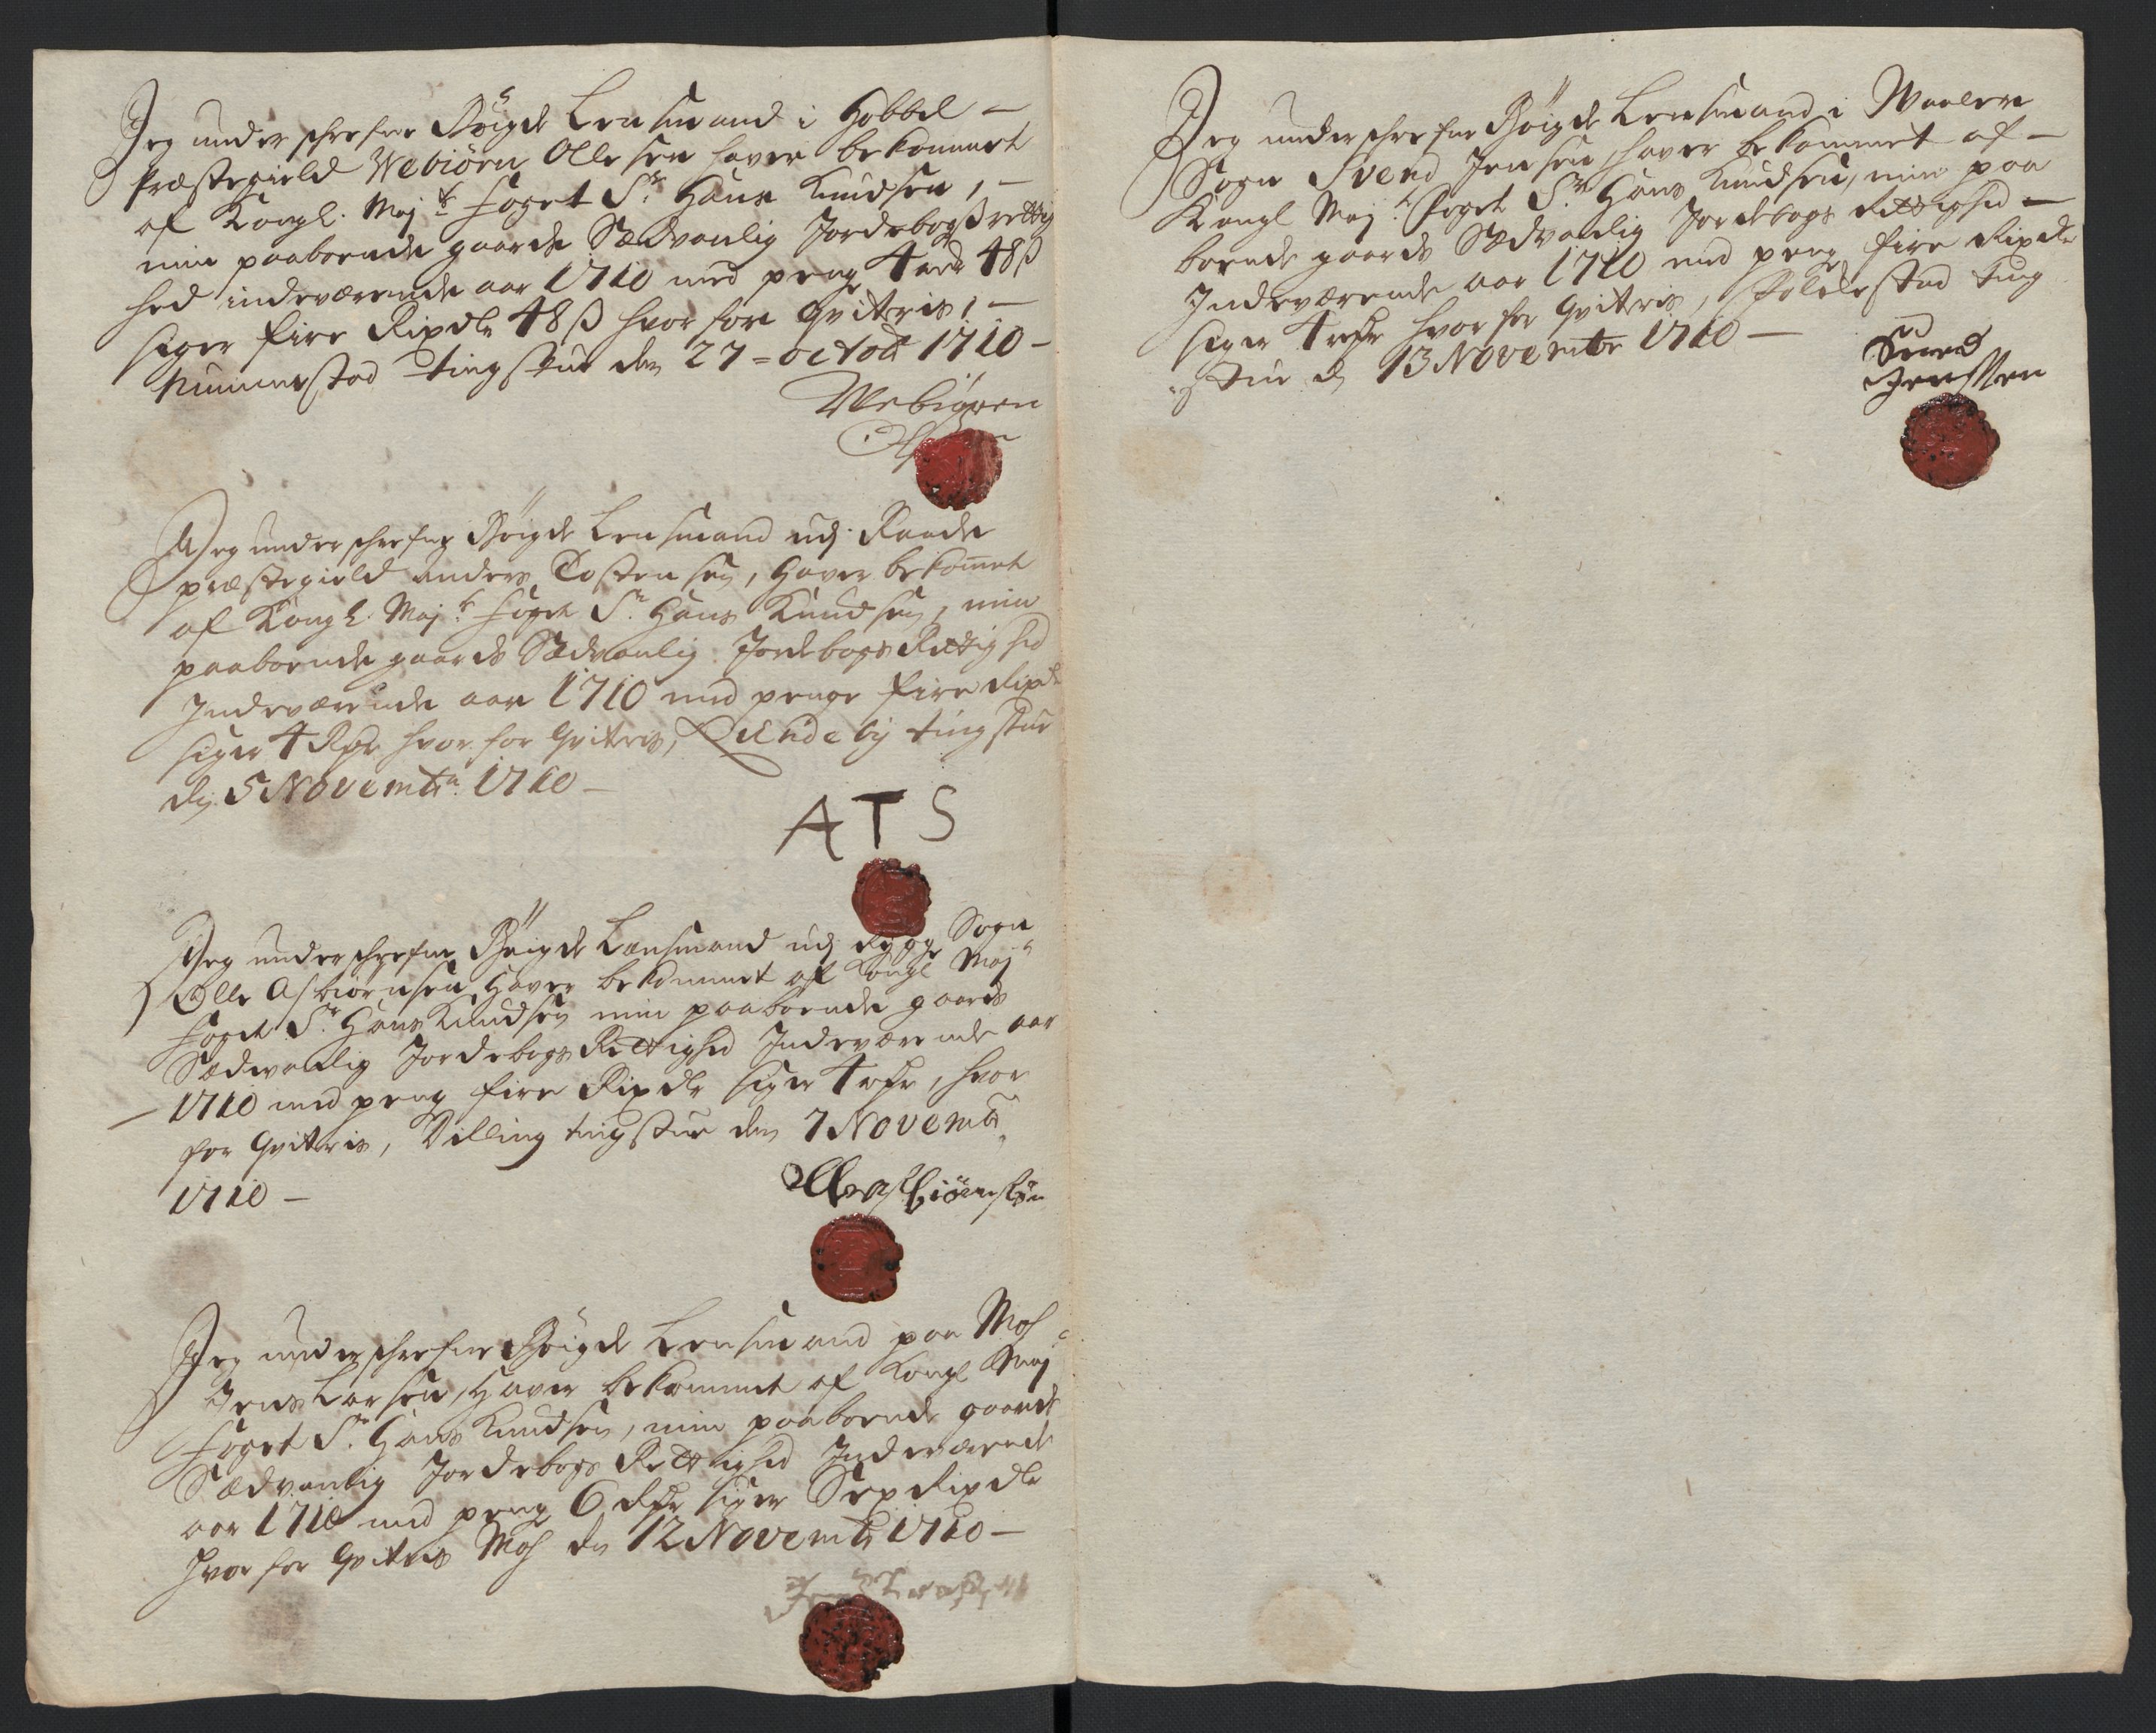 Jeg underschrefne Bøigde Lensmand i Hobbel –
Præstegield Webiørn Ollesen haver bekommet
af Kongl. Maj.ts foget Sr. Hans Knudsen, –
min paaboende gaards Sædvanlig Jordebogs rettig
hed indeværende aar 1710 med penge 4 rdr 48 ß
siger fire Rixdlr 48 ß hvor for qviteris, –
tingstue den 27 = octobr 1710 –
Webiøren
Jeg underschrefne Bøigde Lensmand udj Raade
præstegield anders Tostensen, haver bekomet
af Kongl. Maj.ts foget Sr. Hans Knudsen, min
paaboende gaards Sædvanlig Jordebogs Rettighed
Indeværende aar 1710 med penge fire Rixdr
siger 4 Rdr hvor for qviteris, tingstue
den 5 Novembr. 1710 –
ATS
Jeg underschrefne Bøigde Lænsmand udj Rygge Sogn
Olle Asbiørnsen, haver bekommet af Kongl Maj.ts
foget Sr. Hans Knudsen min paaboende gaards
Sædwanlig Jordebogs Rettighed Indeværende aar
1710 med peng fire Rixdlr siger 4 rdr, hvor
for qviteris, Dilling tingstue den 7 Novembr.
1710 –
Olle Asbiørnsøn
Jeg underschrefne Bøigde Lensmand paa Mos
Jens Larsen, haver bekommet af Kongl May.ts
foget Sr. Hans Knudsen, min paaboende gaards
Sædvanlig Jordebogs Rettighed Indeværende
aar 1710 med peng 6 Rdr siger Sex Rixdlr
hvor for qviteris Mos den 12 Novembr 1710 –
Jeg underschrefne Bøigde Lensmand i Waaler
Sogn Svend Jensen, haver bekommet af –
Kongl Maj.ts foget Sr. Hans Knudsen, min paa
boende gaards Sædvanlig Jordebogs Rettighed –
Indeværende aar 1710 med peng fire Rixdlr
siger 4 rdr hvor for qviteris, ting
stue d 13 Novembr 1710 –
Svend
Jenssen